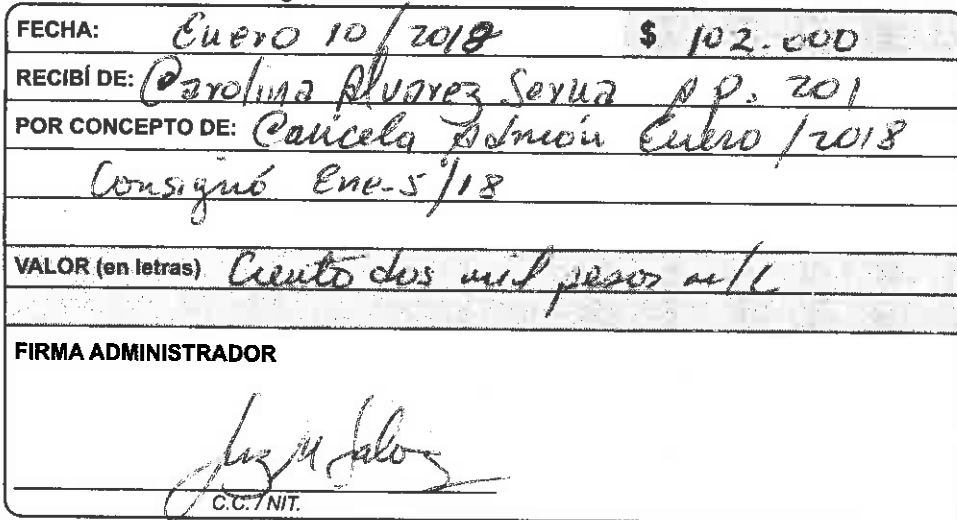 FECHA: Enero 10/2018 $ 102.000
RECIBÍ DE: Carolina Alvarez Serna Ap. 201
POR CONCEPTO DE: Cancela Admón Enero /2018
Consignó Ene-5/18
VALOR (en letras) Ciento dos mil pesos m/l
FIRMA ADMINISTRADOR
C.C. / NIT.